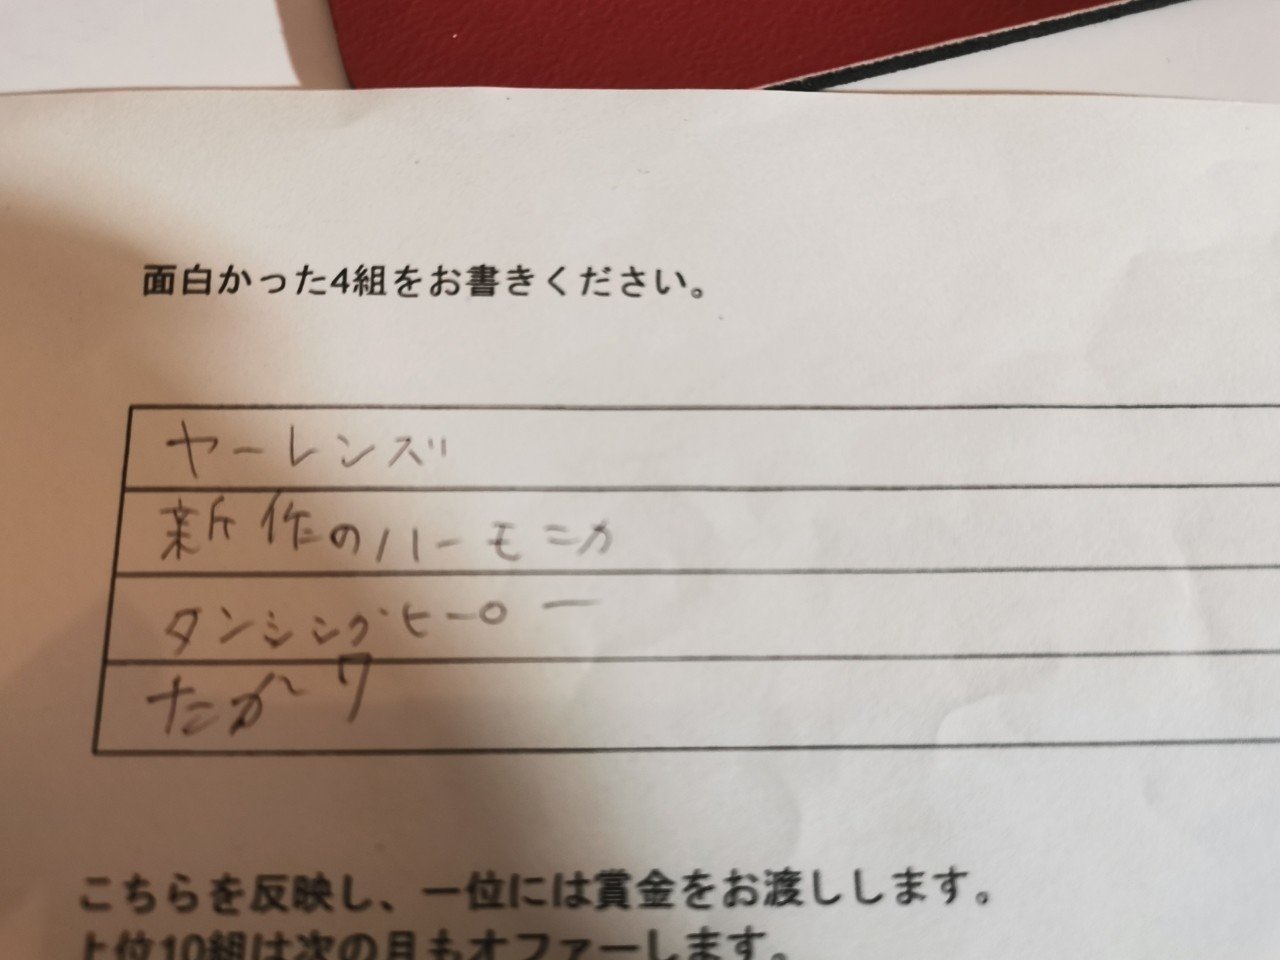 面白かった4組をお書きください。
ヤーレンズ
新作のハーモニカ
タンシングヒーロー
たがワ
こちらを反映し、一位には賞金をお渡しします。
上位10組は次の月もオファーします。